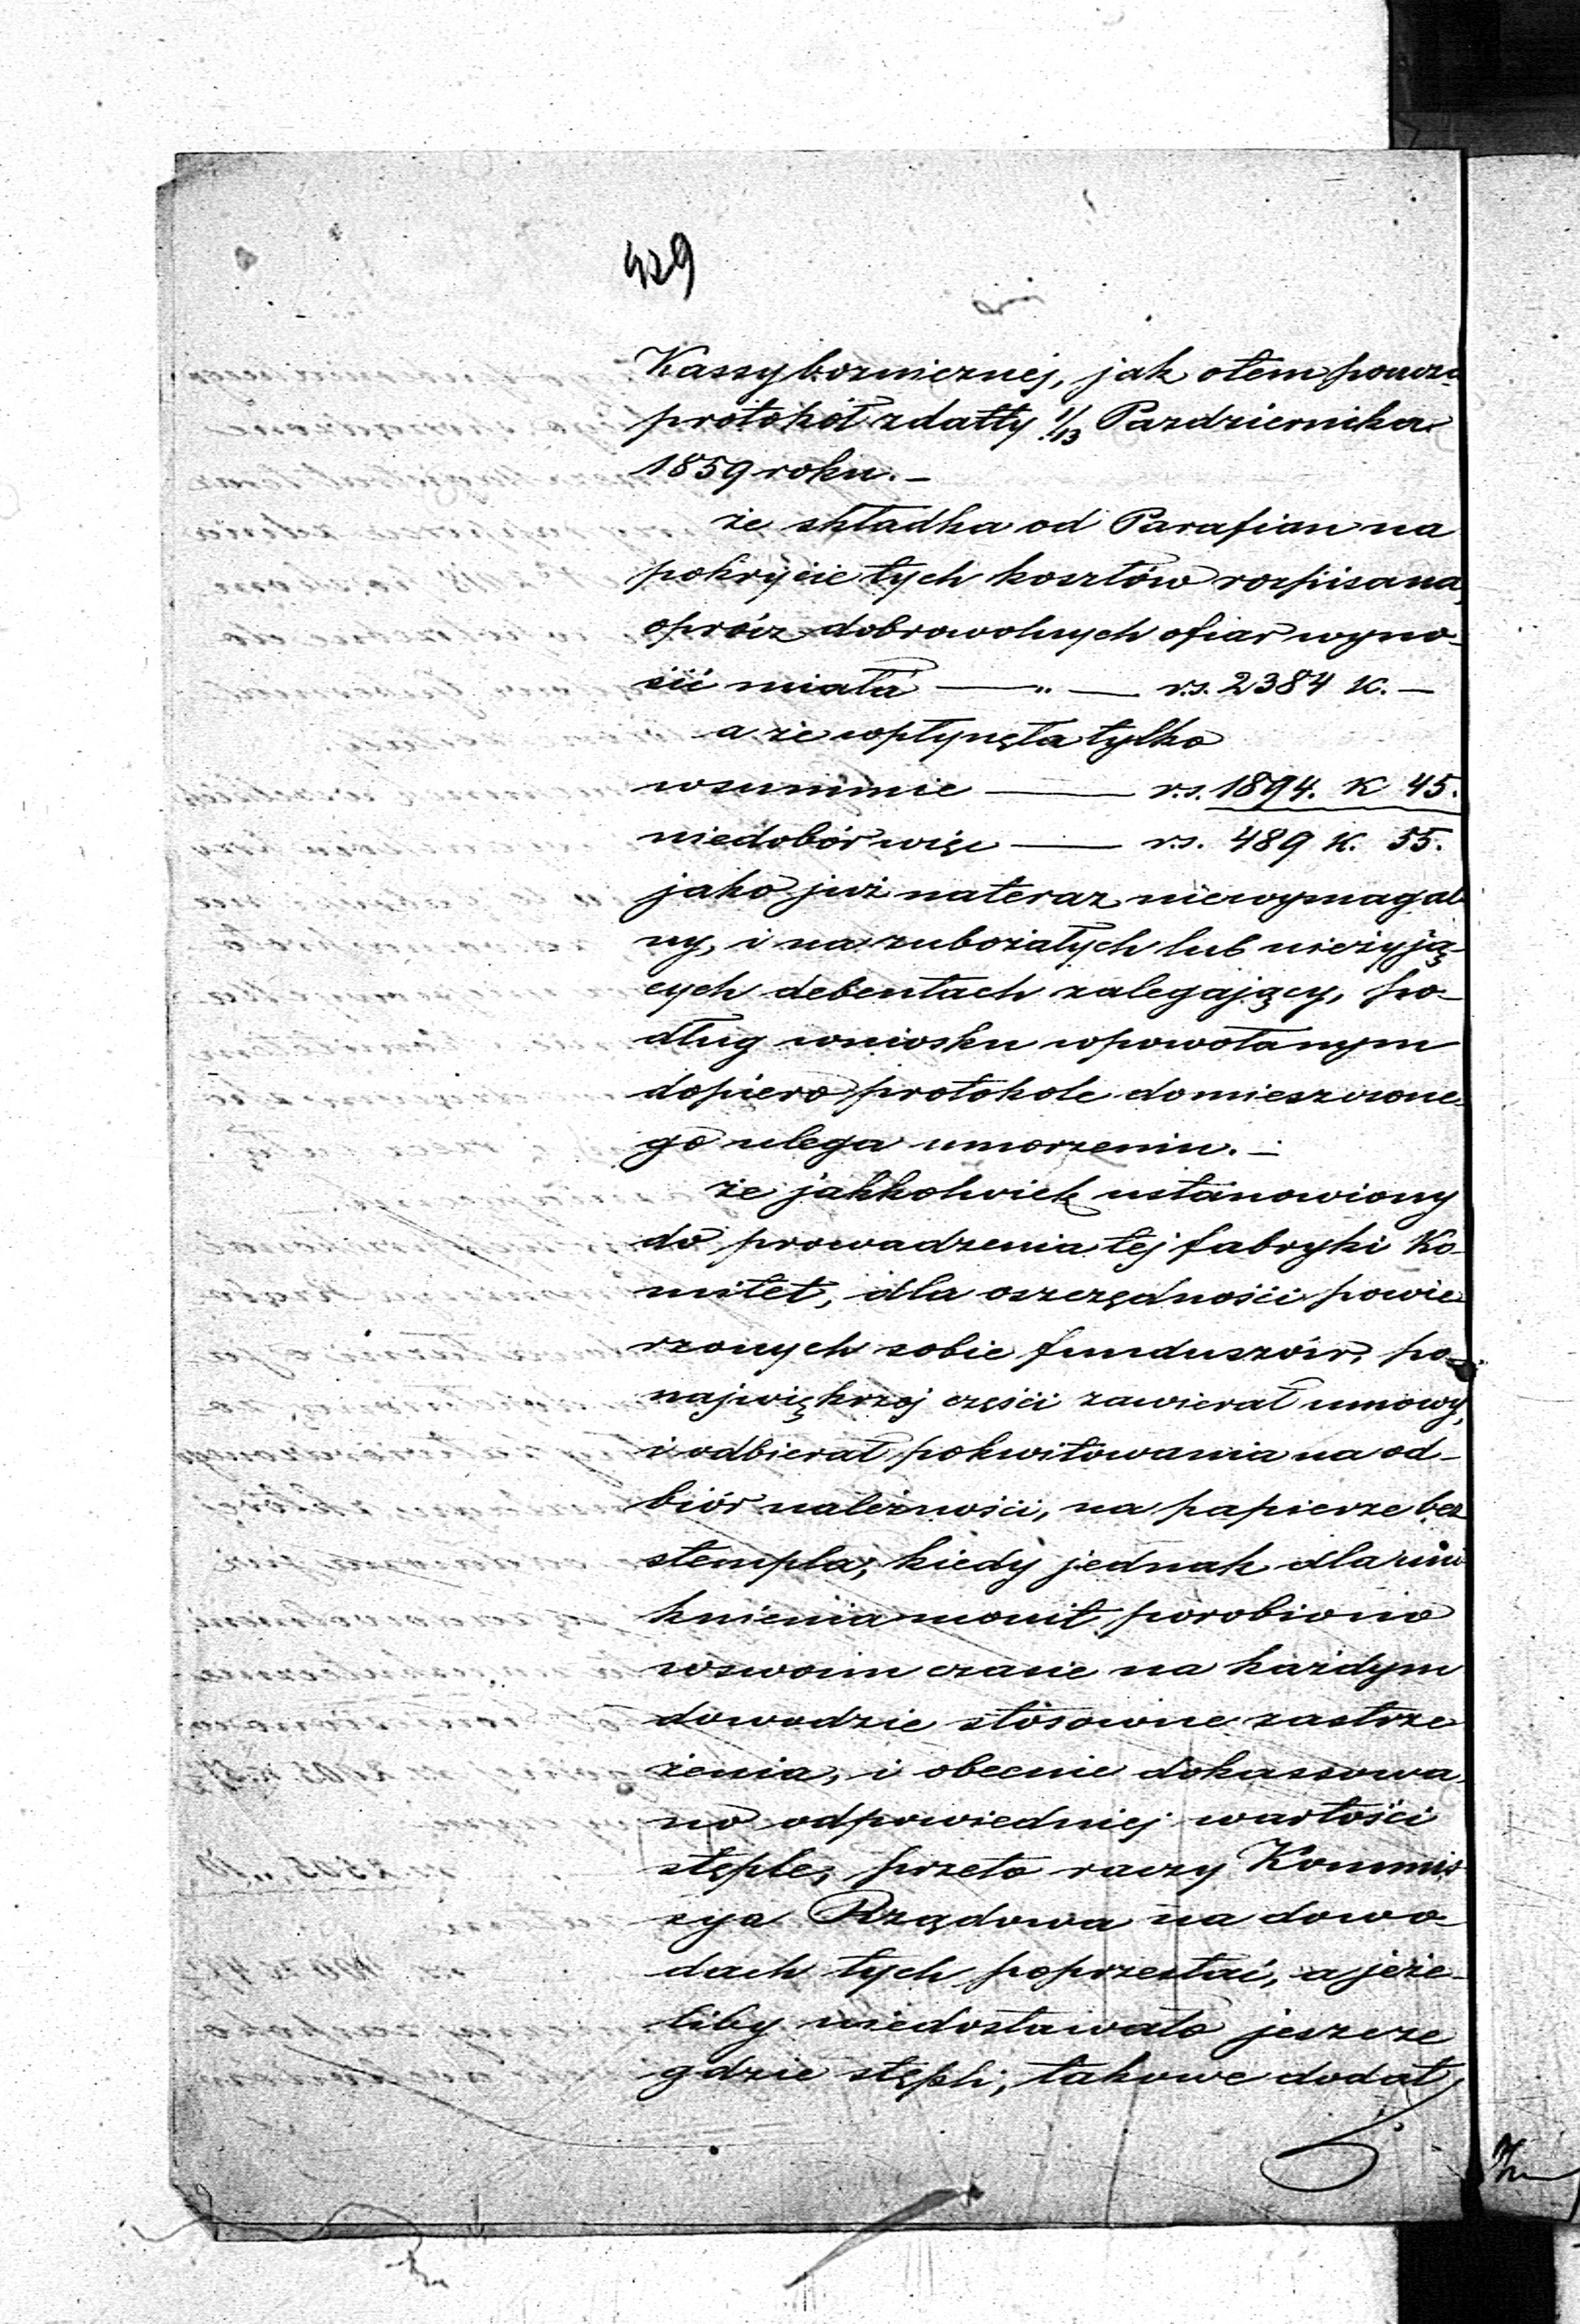 429
Kassy bożnicznej, jak o tem
protokół z datty 1/13 Pazdziernika
1859 roku. –
że składka od Parafian na
pokrycie tych kosztów rozpisana,
oprócz dobrowolnych ofiar wyno-
sić miała — „ — rs. 2384 K. –
a że wpłynęła tylko
w summie — rs. 1894. K 45.
niedobór więc — rs. 489 K. 55.
jako już nateraz niewymagal
ny, i na zubożałych lub nieżyją-
cych debentach zalegający, po-
dług wniosku w powołanym
dopiero protokole domieszczone-
go ulega umorzeniu. –
że jakkolwiek ustanowiony
do prowadzenia tej fabryki Ko-
mitet, dla oszczędności powie-
rzonych sobie funduszów, po
największej części zawierał umowy,
i odbierał pokwitowania na od-
biór należności, na papierze bez
stempla, kiedy jednak dla uni
knienia monit porobiono
w swoim czasie na każdym
dowodzie stósowne zastrze
żenia, i obecnie dokassowa-
no odpowiedniej wartości
stęple, przeto raczy Kommis-
sya Rządowa na dowo-
dach tych poprzestać, a jeże-
liby niedostawało jeszcze
gdzie stępli, takowe dodat